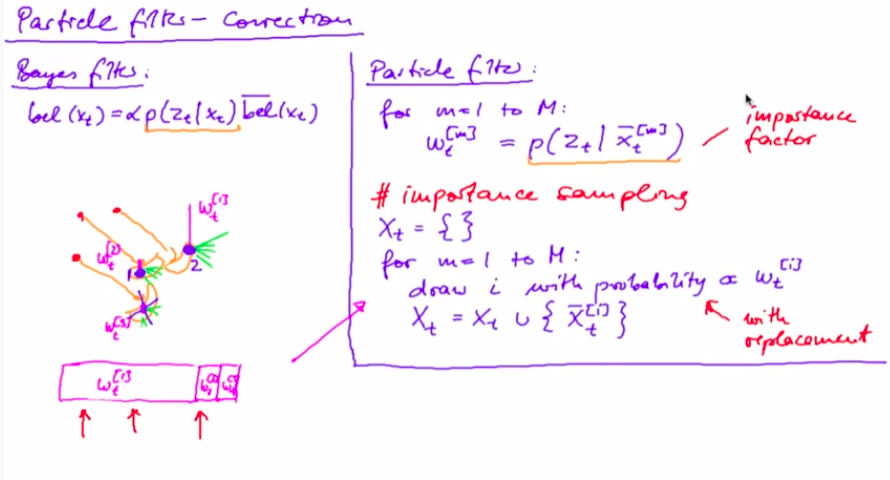 Particle filter - Correction
Bayes filter:
bel(x_t) = α p(z_t | x_t) \overline{bel}(x_t)
w_t^{[1]}
w_t^{[2]}
1
2
w_t^{[3]}
w_t^{[1]}
Particle filter:
for m=1 to M:
w_t^{[m]} = p(z_t | \overline{x}_t^{[m]})
importance
factor
# importance sampling
X_t = { }
for m=1 to M:
draw i with probability ∝ w_t^{[i]}
X_t = X_t ∪ { \overline{x}_t^{[i]} }
with
replacement